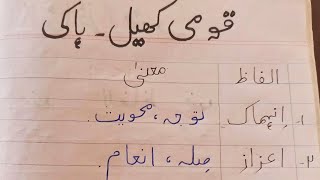 قومی کھیل ۔ ہاکی
الفاظ معنیٰ
۱۔ اِنہماک توجہ، محویت۔
۲۔ اعزاز صِلہ، انعام۔